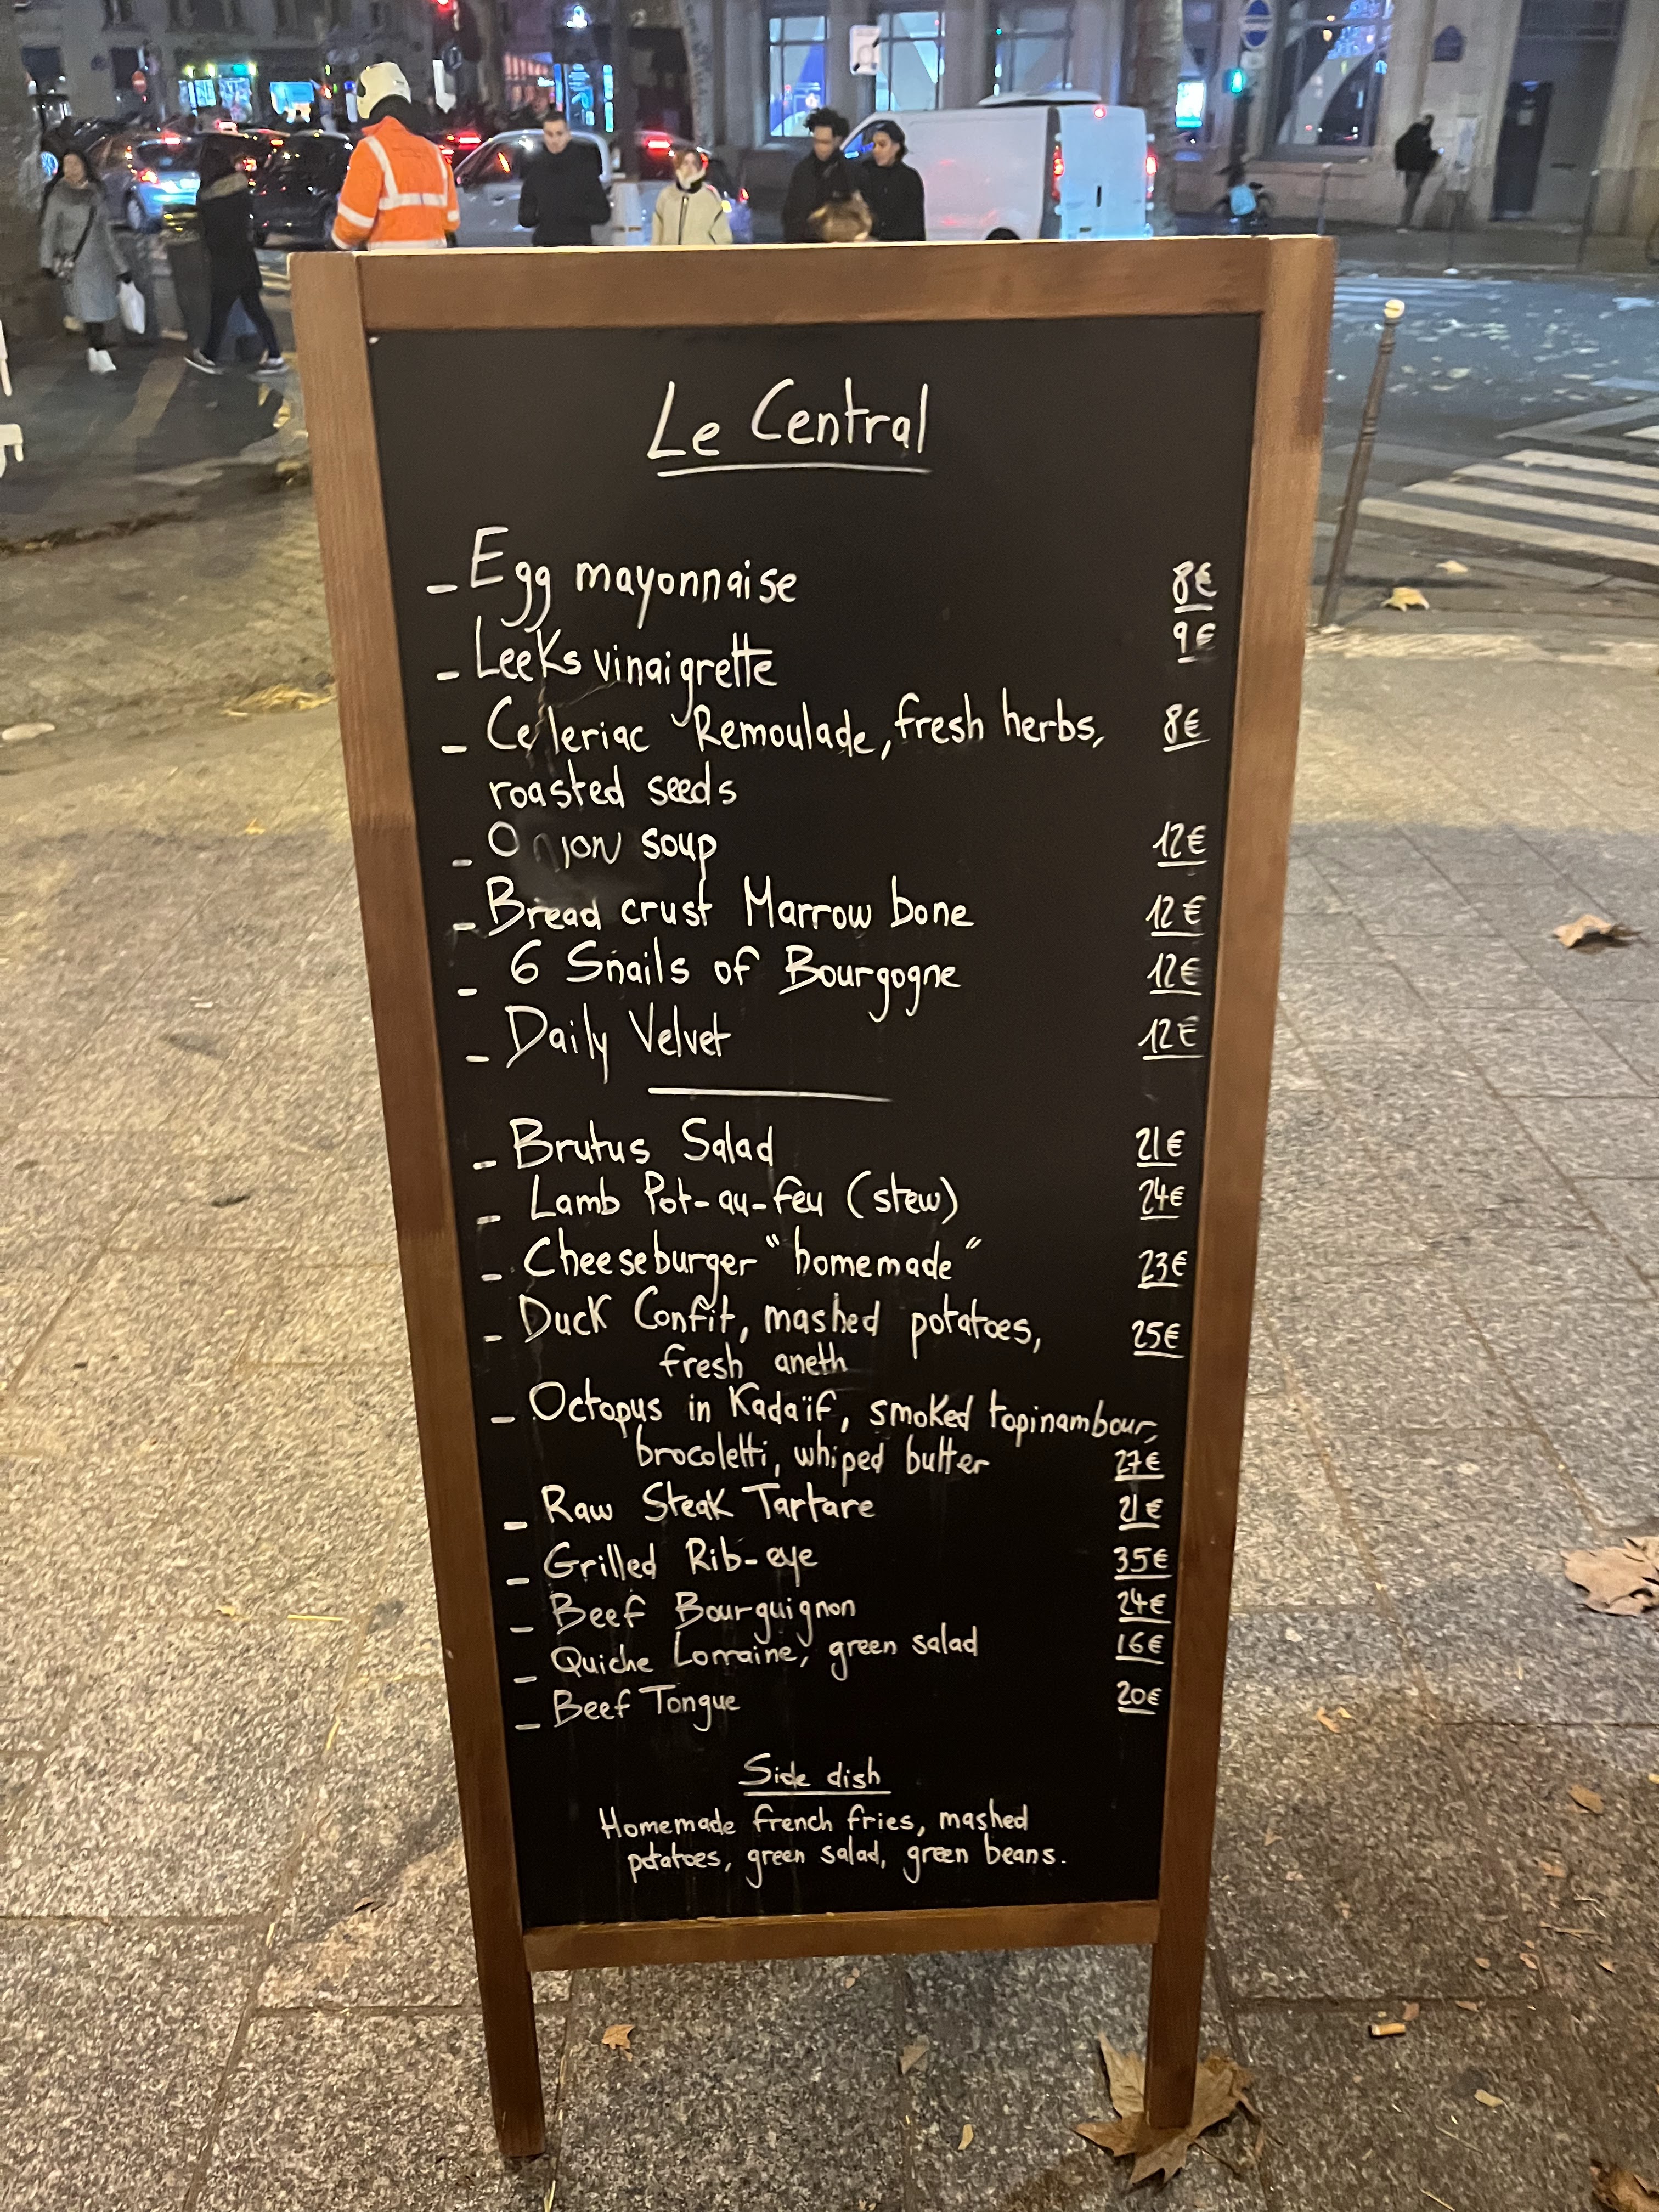 Le Central
- Egg mayonnaise 8€
- Leeks vinaigrette 9€
- Celeriac Remoulade, fresh herbs, 8€
roasted seeds
- Onion soup 12€
- Bread crust Marrow bone 12€
- 6 Snails of Bourgogne 12€
- Daily Velvet 12€
- Brutus Salad 21€
- Lamb Pot-au-feu (stew) 24€
- Cheeseburger "homemade" 23€
- Duck Confit, mashed potatoes, 25€
fresh aneth
- Octopus in Kadaïf, smoked topinambour,
brocoletti, whiped butter 27€
- Raw Steak Tartare 21€
- Grilled Rib-eye 35€
- Beef Bourguignon 24€
- Quiche Lorraine, green salad 16€
- Beef Tongue 20€
Side dish
Homemade french fries, mashed
potatoes, green salad, green beans.